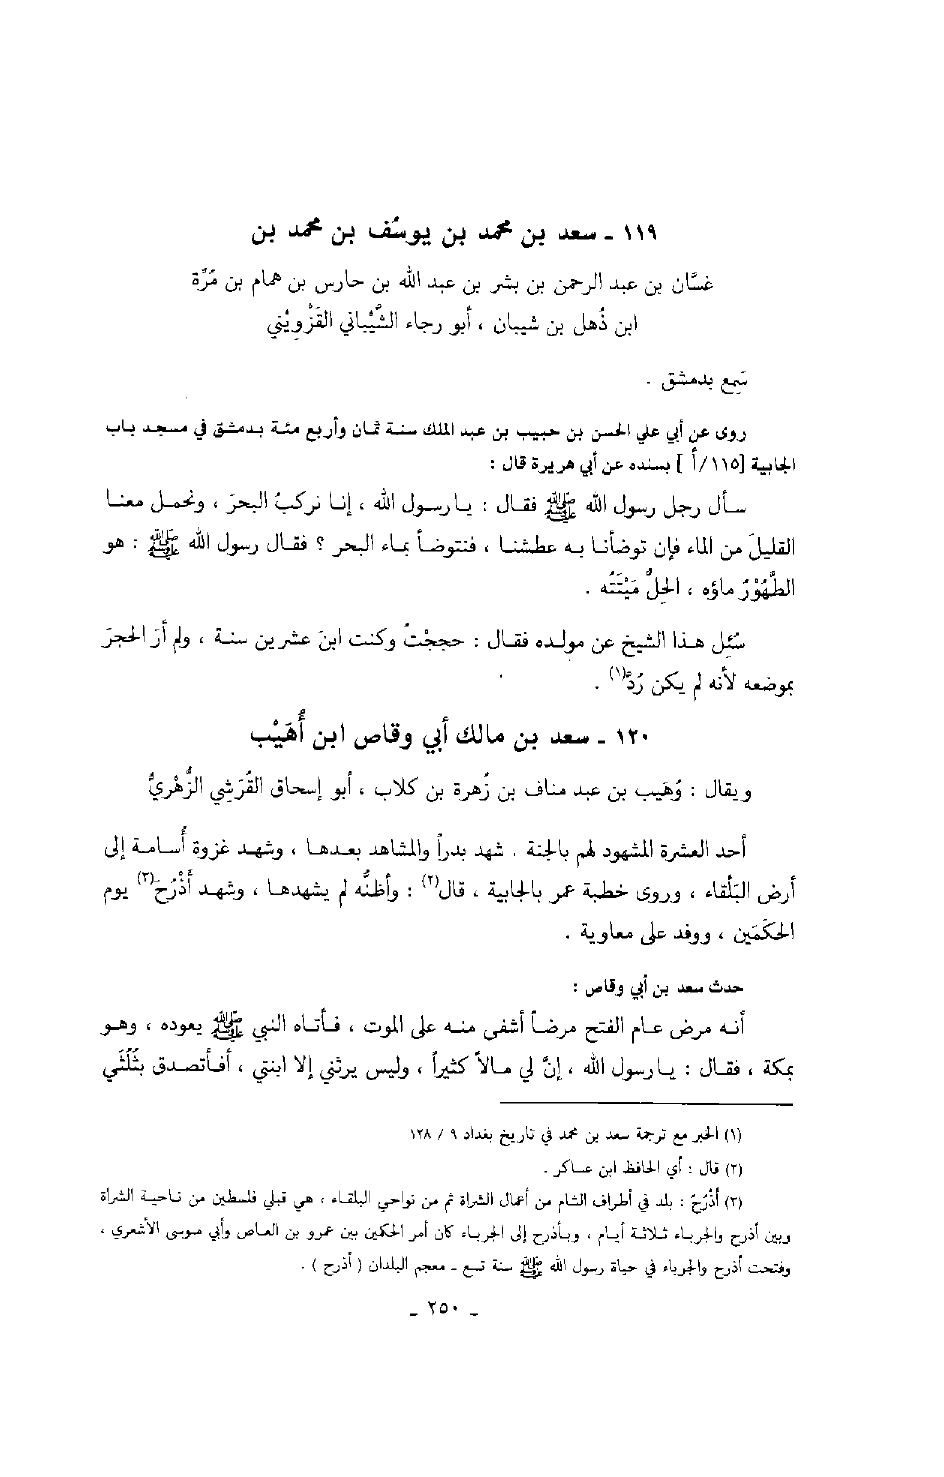 ١١٩ ـ سعد بن محمد بن يوسُف بن محمد بن
غسَّان بن عبد الرحمن بن بشر بن عبد الله بن حارس بن همام بن مُرَّة
ابن ذُهل بن شيبان ، أبو رجاء الشَّيْباني القَزْوِيْني
سَمِع بدمشق .
روى عن أبي علي الحسن بن حبيب بن عبد الملك سنة ثمان وأربع مئة بدمشق في مسجد باب
الجابية [١١٥/أ] بسنده عن أبي هريرة قال :
سأل رجل رسول الله ﷺ فقال : يارسول الله ، إنا نركبُ البحرَ ، ونحمل معنا
القليلَ من الماء فإن توضأنا به عطشنا ، فنتوضأ بماء البحر ؟ فقال رسول الله ﷺ : هو
الطَّهُوْرُ ماؤه ، الحِلُّ مَيْتَتُه .
سُئِل هذا الشيخ عن مولده فقال : حججْتُ وكنت ابنَ عشرين سنة ، ولم أرَ الحجرَ
بموضعه لأنه لم يكن رُدَّ(١) .
١٢٠ ـ سعد بن مالك أبي وقاص ابن أُهَيْب
ويقال : وُهَيب بن عبد مناف بن زُهرة بن كلاب ، أبو إسحاق القُرَشي الزُّهْريُّ
أحد العشرة المشهود لهم بالجنة . شهد بدراً والمشاهد بعدها ، وشهد غزوة أُسامة إلى
أرض البَلْقاء ، وروى خطبة عمر بالجابية ، قال(٢) : وأظنُّه لم يشهدها ، وشهد أَذْرُح(٣) يوم
الحَكَمَين ، ووفد على معاوية .
حدث سعد بن أبي وقاص :
أنه مرض عام الفتح مرضاً أشفى منه على الموت ، فأتاه النبي ﷺ يعوده ، وهو
بمكة ، فقال : يارسول الله ، إنَّ لي مالاً كثيراً ، وليس يرثني إلا ابنتي ، أفأتصدق بثُلُثَي
(١) الخبر مع ترجمة سعد بن محمد في تاريخ بغداد ٩ / ١٢٨
(٢) قال : أي الحافظ ابن عساكر .
(٣) أَذْرُحُ : بلد في أطراف الشام من أعمال الشراة ثم من نواحي البلقاء ، هي قبلي فلسطين من ناحية الشراة
وبين أذرح والجرباء ثلاثة أيام ، وبأذرح إلى الجرباء كان أمر الحكمين بين عمرو بن العاص وأبي موسى الأشعري ،
وفتحت أذرح والجرباء في حياة رسول الله ﷺ سنة تسع ـ معجم البلدان ( أذرح ) .
ـ ٢٥٠ ـ